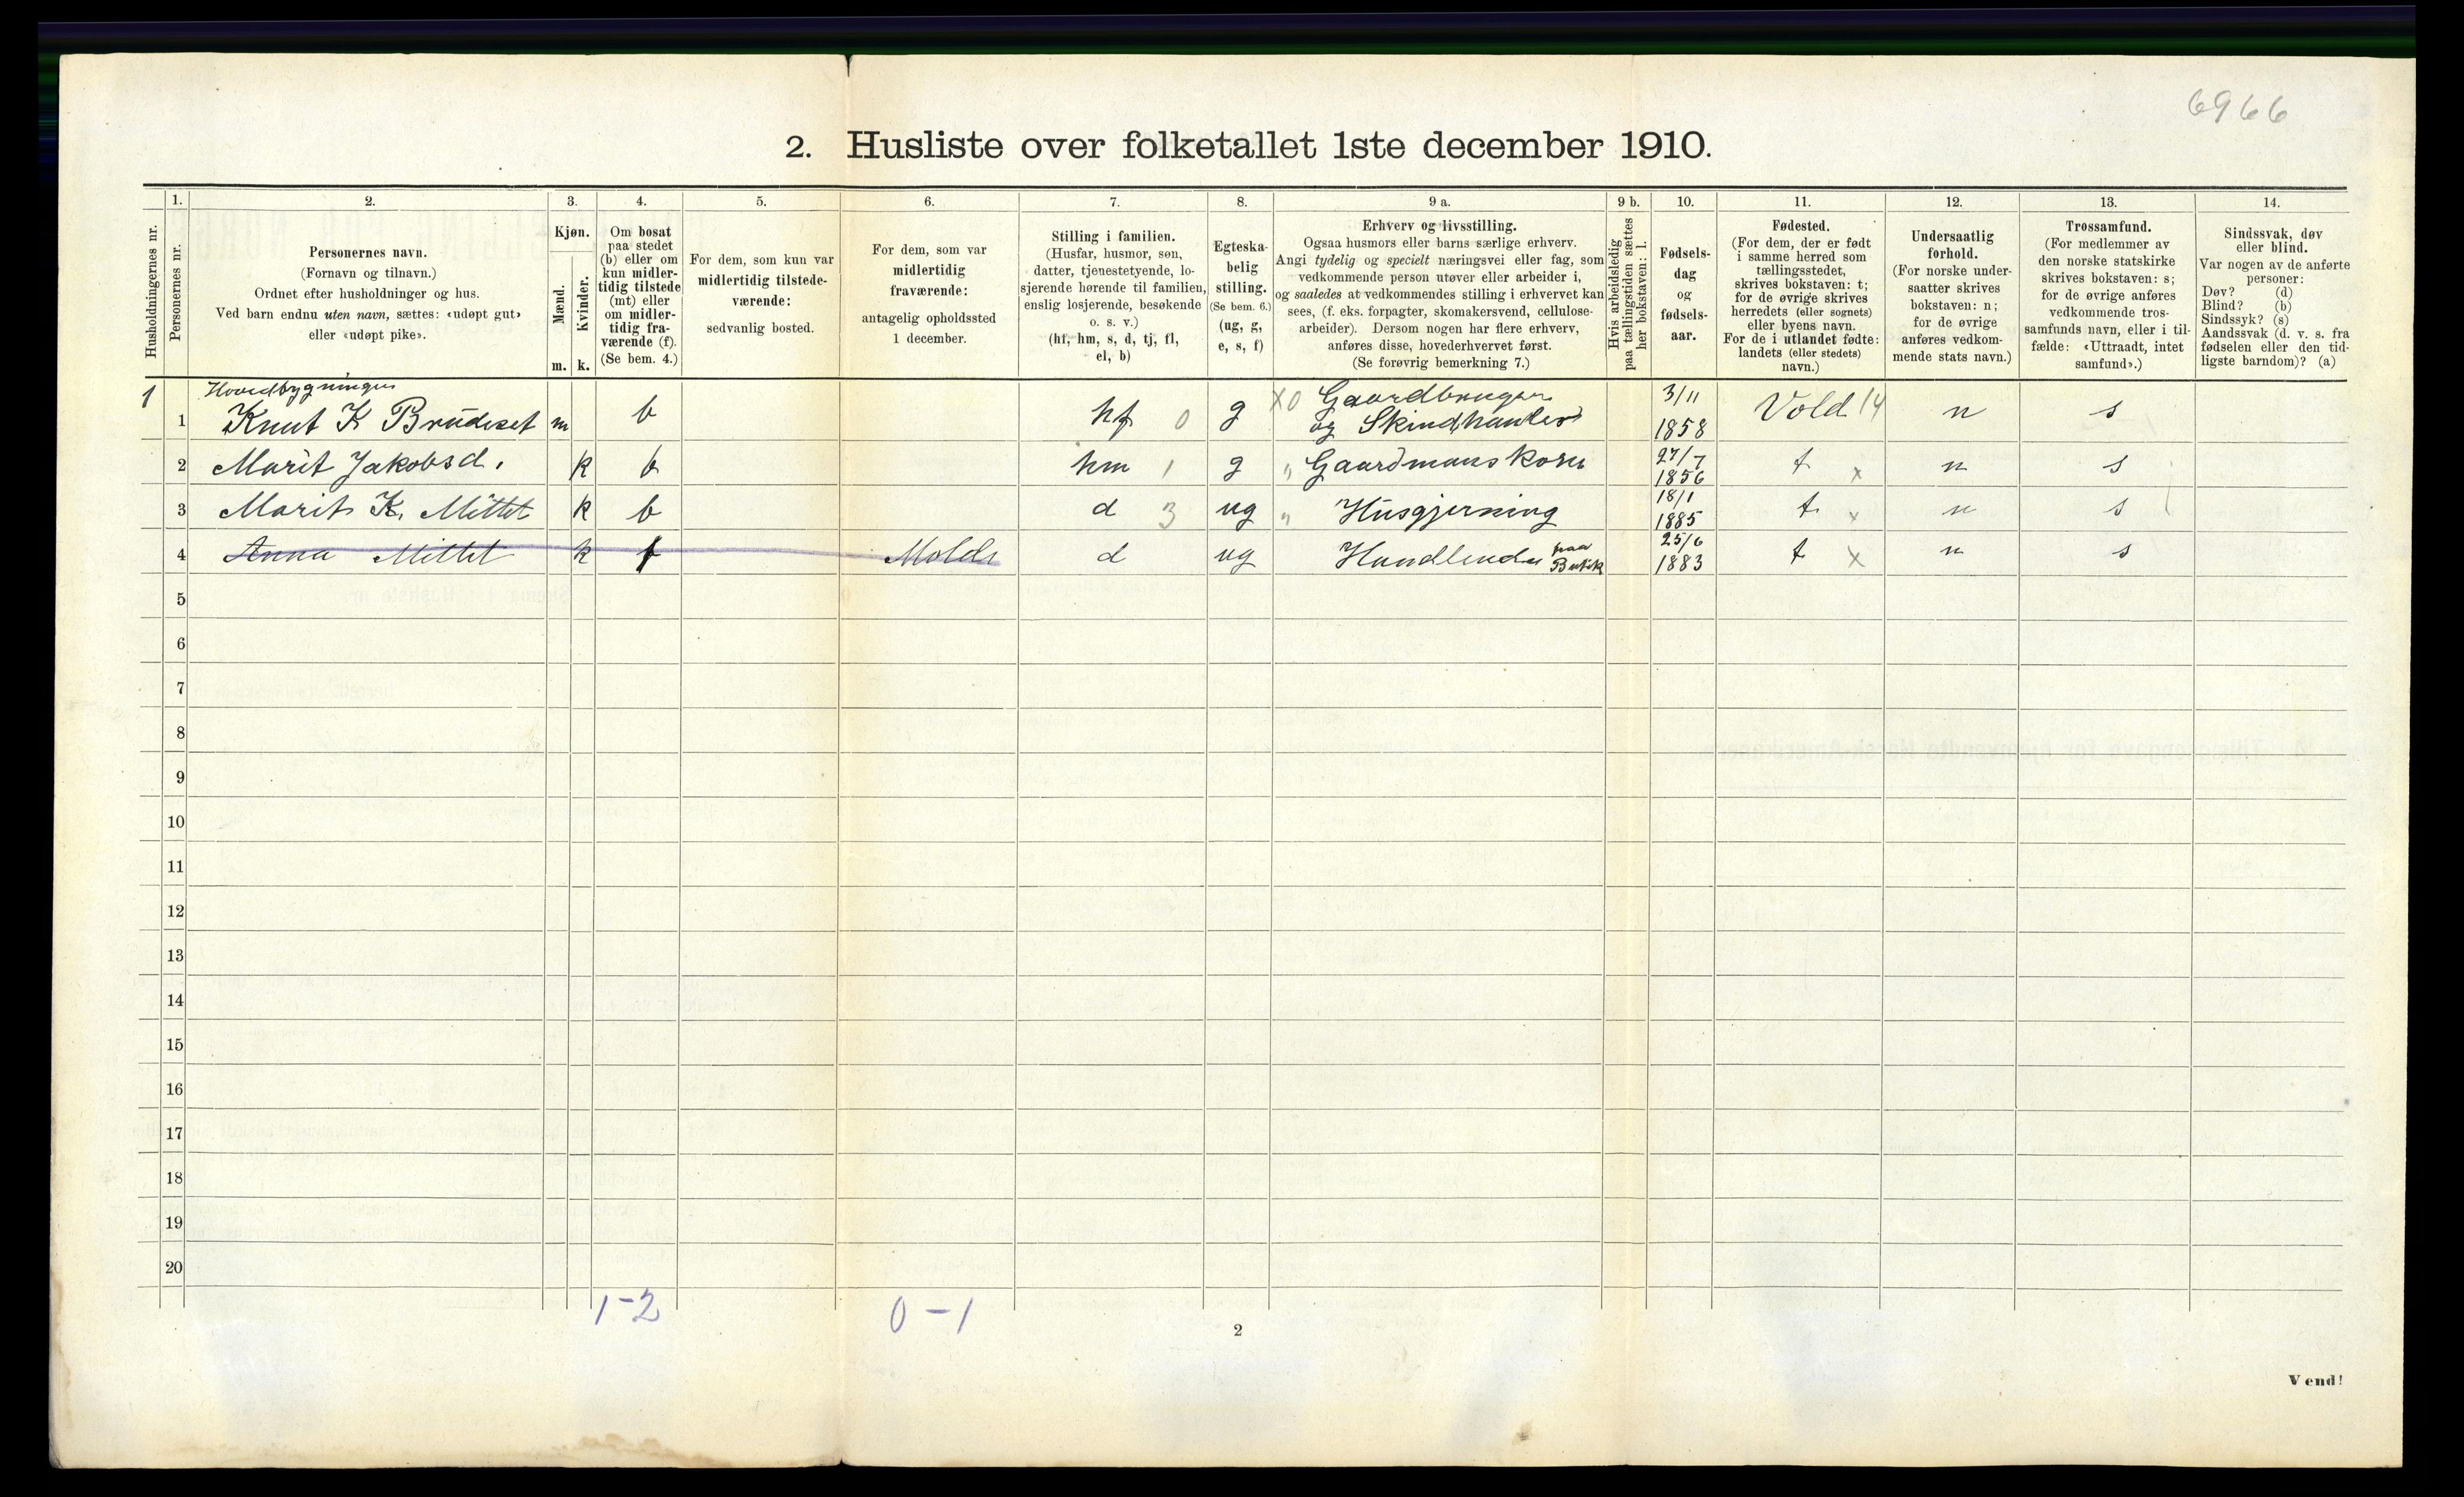 6966
2. Husliste over folketallet 1ste december 1910.
Husholdningernes nr.
1.
Personernes nr.
2.
Personernes navn.
(Fornavn og tilnavn.)
Ordnet efter husholdninger og hus.
Ved barn endnu uten navn, sættes: «udøpt gut»
eller «udøpt pike».
3.
Kjøn.
Mænd.
Kvinder.
m. k.
4.
Om bosat
paa stedet
(b) eller om
kun midler-
tidig tilstede
(mt) eller
om midler-
tidig fra-
værende (f).
(Se bem. 4.)
5.
For dem, som kun var
midlertidig tilstede-
værende:
sedvanlig bosted.
6.
For dem, som var
midlertidig
fraværende:
antagelig opholdssted
1 december.
7.
Stilling i familien.
(Husfar, husmor, søn,
datter, tjenestetyende, lo-
sjerende hørende til familien,
enslig losjerende, besøkende
o. s. v.)
(hf, hm, s, d, tj, fl,
el, b)
8.
Egteska-
belig
stilling.
(Se bem. 6.)
(ug, g,
e, s, f)
9 a.
Erhverv og livsstilling.
Ogsaa husmors eller barns særlige erhverv.
Angi tydelig og specielt næringsvei eller fag, som
vedkommende person utøver eller arbeider i,
og saaledes at vedkommendes stilling i erhvervet kan
sees, (f. eks. forpagter, skomakersvend, cellulose-
arbeider). Dersom nogen har flere erhverv,
anføres disse, hovederhvervet først.
(Se forøvrig bemerkning 7.)
9 b.
Hvis arbeidsledig
paa tællingstiden sættes
her bokstaven: l.
10.
Fødsels-
dag
og
fødsels-
aar.
11.
Fødested.
(For dem, der er født
i samme herred som
tællingsstedet,
skrives bokstaven: t;
for de øvrige skrives
herredets (eller sognets)
eller byens navn.
For de i utlandet fødte:
landets (eller stedets)
navn.)
12.
Undersaatlig
forhold.
(For norske under-
saatter skrives
bokstaven: n;
for de øvrige
anføres vedkom-
mende stats navn.)
13.
Trossamfund.
(For medlemmer av
den norske statskirke
skrives bokstaven: s;
for de øvrige anføres
vedkommende tros-
samfunds navn, eller i til-
fælde: «Uttraadt, intet
samfund».)
14.
Sindssvak, døv
eller blind.
Var nogen av de anførte
personer:
Døv? (d)
Blind? (b)
Sindssyk? (s)
Aandssvak (d. v. s. fra
fødselen eller den tid-
ligste barndom)? (a)
Hovedbygningen
1 1 Knut K Brudeset m b hf 0 g X0 Gaardbruger og Skindhandler 3/11 1858 Vold 14 n s
2 Marit Jakobsd. k b hm 1 g " Gaardmanskone 27/7 1856 t x n s
3 Marit K. Mittet k b d 3 ug " Husgjerning 18/1 1885 t x n s
4 Anna Mittet k f Molde d ug Handlende paa Butik 25/6 1883 t x n s
5
6
7
8
9
10
11
12
13
14
15
16
17
18
19
20
1-2 0-1
2
Vend!